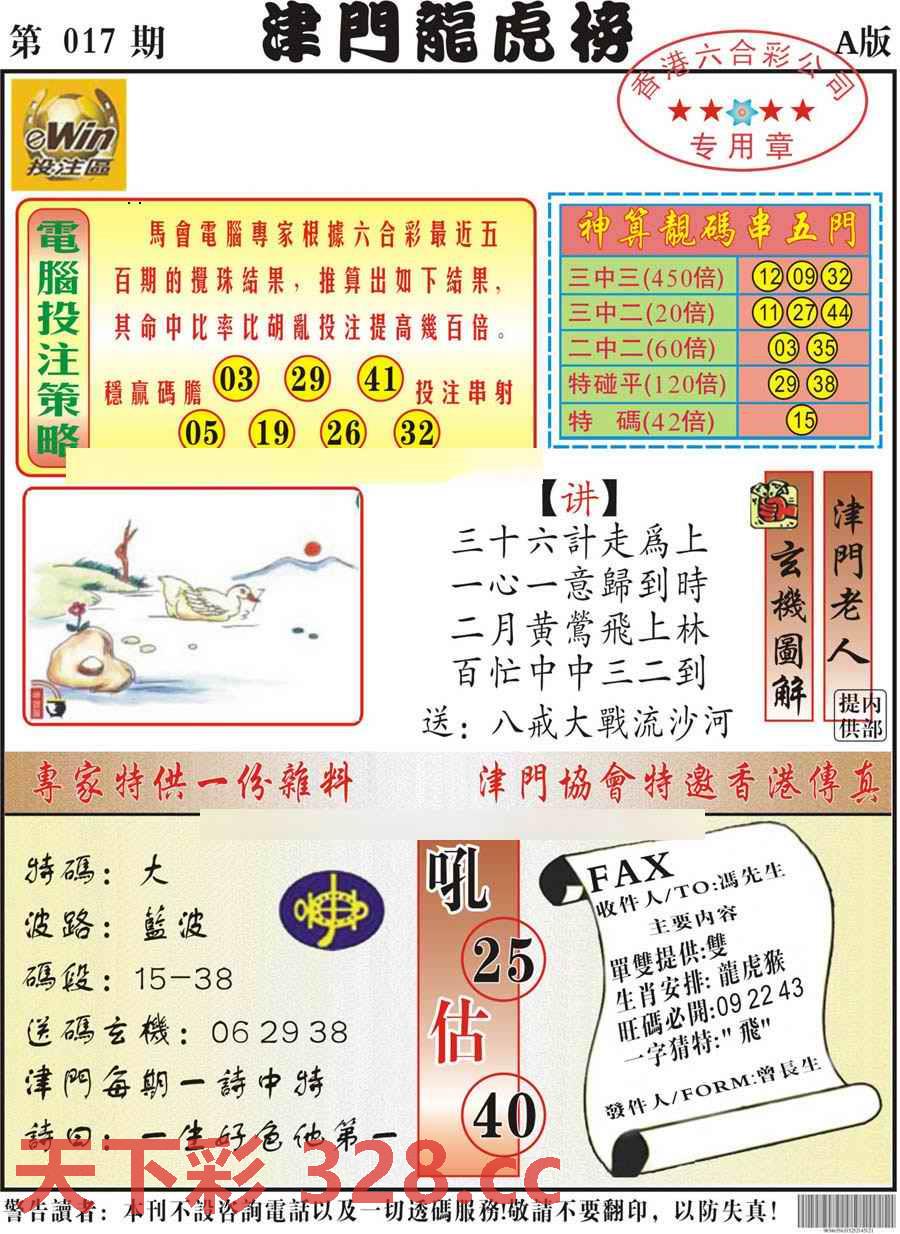 第 017 期
津門龍虎榜
A版
香港六合彩公司
专用章
eWin
投注區
電腦投注策略
馬會電腦專家根據六合彩最近五
百期的攪珠結果，推算出如下結果，
其命中比率比胡亂投注提高幾百倍。
穩贏碼膽 03 29 41 投注串射
05 19 26 32
神算靚碼串五門
三中三(450倍) 12 09 32
三中二(20倍) 11 27 44
二中二(60倍) 03 35
特碰平(120倍) 29 38
特 碼(42倍) 15
【讲】
三十六計走爲上
一心一意歸到時
二月黄鶯飛上林
百忙中中三二到
送：八戒大戰流沙河
玄機圖解
津門老人
内部提供
專家特供一份雜料
津門協會特邀香港傳真
特碼：大
波路：藍波
碼段：15-38
送碼玄機：06 29 38
津門每期一詩中特
詩曰：一生好色他第一
吼
25
估
40
FAX
收件人/TO:馮先生
主要内容
單雙提供:雙
生肖安排: 龍虎猴
旺碼必開:09 22 43
一字猜特:"飛"
發件人/FORM:曾長生
天下彩 328.cc
警告讀者：本刊不設咨詢電話以及一切透碼服務!敬請不要翻印，以防失真!